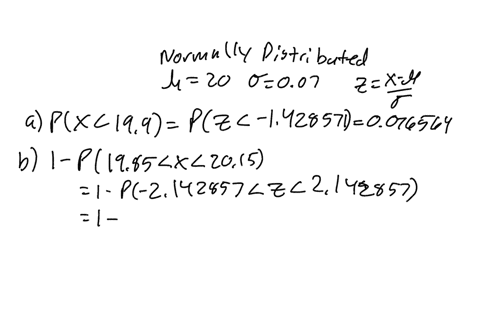 Normally Distributed
μ=20 σ=0.07 z=x-μ/σ
a) P(x<19.9)=P(z<-1.428571)=0.076564
b) 1-P(19.85<x<20.15)
=1-P(-2.142857<z<2.142857)
=1-